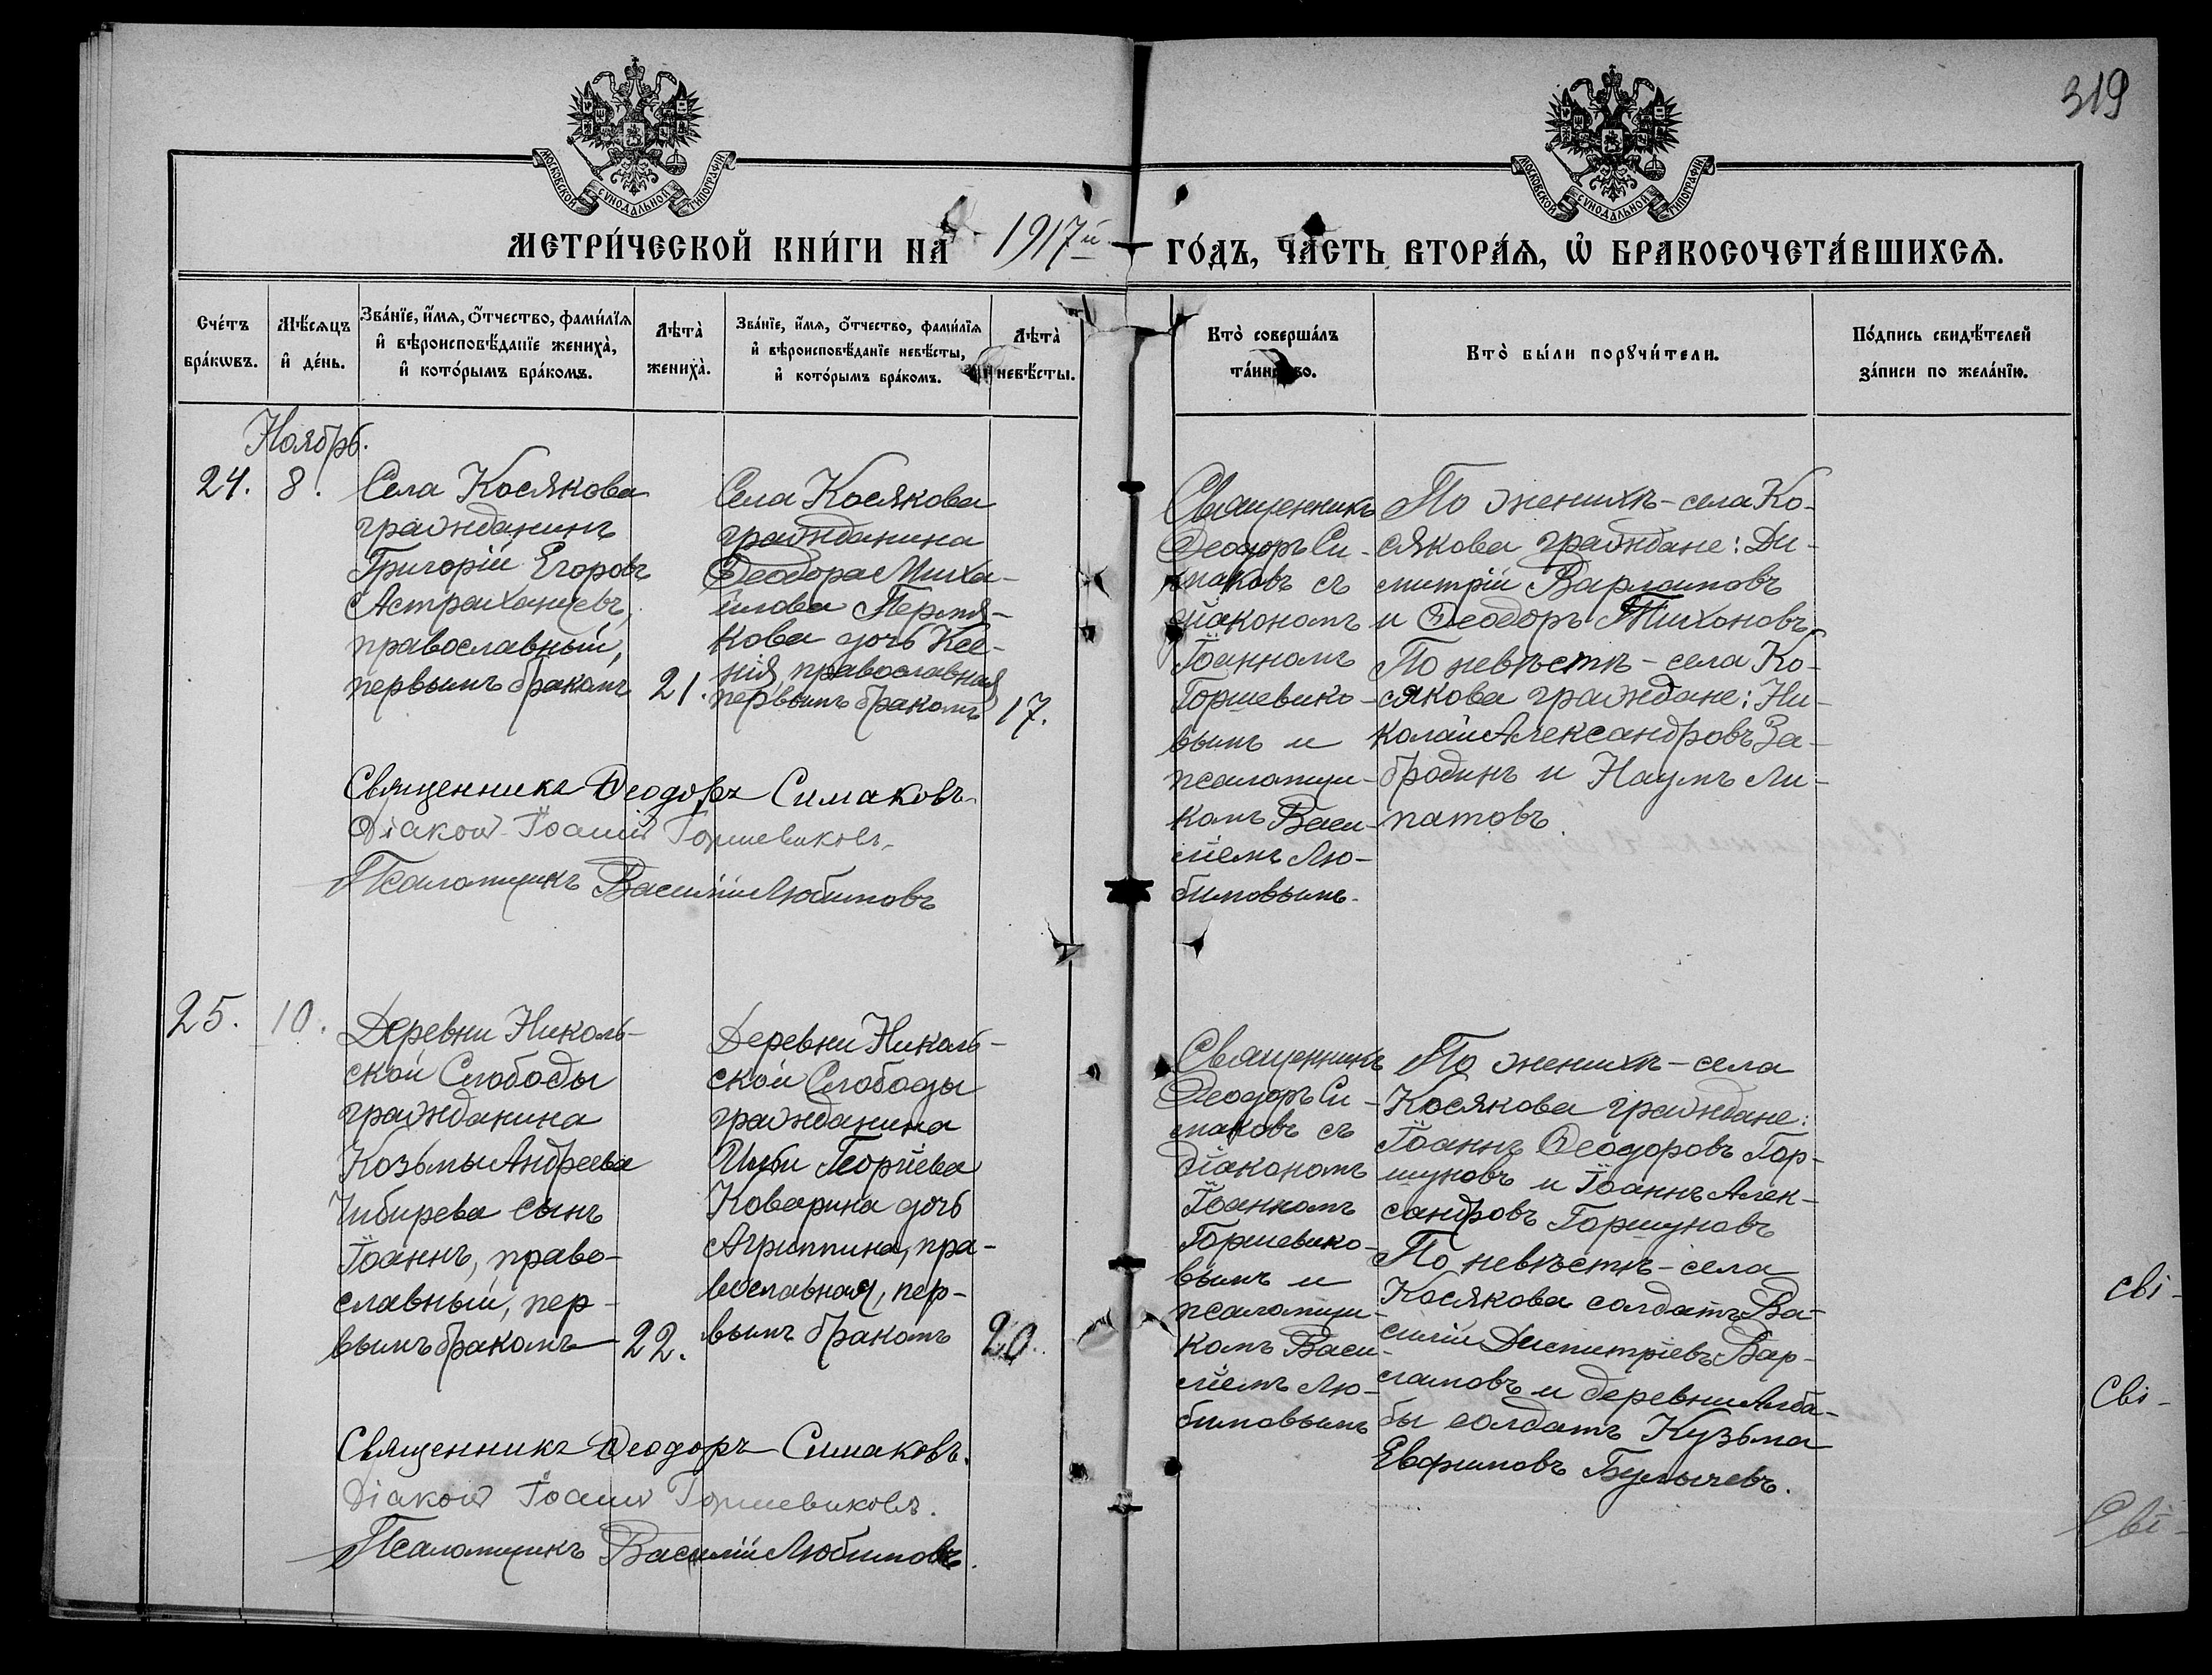 319
МОСКОВСКОЙ СѴНОДАЛЬНОЙ ТИПОГРАФІИ
МОСКОВСКОЙ СѴНОДАЛЬНОЙ ТИПОГРАФІИ
МЕТРИ́ЧЕСКОЙ КНИ́ГИ НА 1917й ГО́ДЪ, ЧА́СТЬ ВТОРА́Ѧ, Ѡ҆ БРАКОСОЧЕТА́ВШИХСѦ.
Сче́тъ
бра́кѡвъ.
Мѣ́сѧцъ
и҆ де́нь.
Зва́нїе, и҆́мѧ, ѻ҆́тчество, фами́лїѧ
и҆ вѣроисповѣ́данїе жениха̀,
и҆ кото́рымъ бра́комъ.
Лѣта̀
жениха̀.
Зва́нїе, и҆́мѧ, ѻ҆́тчество, фами́лїѧ
и҆ вѣроисповѣ́данїе невѣ́сты,
и҆ кото́рымъ бра́комъ.
Лѣта̀
невѣ́сты.
Кто̀ соверша́лъ
та́инство.
Кто̀ бы́ли порꙋчи́тели.
По́дпись свидѣ́телей
за́писи по жела́нїю.
Ноябрь.
24.
8.
Села Косякова
гражданинъ
Григорій Егоровъ
Астраханцевъ,
православный,
первымъ бракомъ
21.
Села Косякова
гражданина
Ѳеодора Миха-
илова Пермя-
кова дочь Ксе-
нія, православная
первымъ бракомъ
17.
Священникъ
Ѳеодоръ Си-
маковъ съ
діакономъ
Іоанномъ
Горшевико-
вымъ и
псаломщи-
комъ Васи-
ліемъ Лю-
бимовымъ.
По женихѣ - села Ко-
сякова граждане: Ди-
митрій Варламовъ
и Ѳеодоръ Тихоновъ,
По невѣстѣ - села Ко-
сякова граждане: Ни-
колай Александровъ За-
бродинъ и Наумъ Ли-
патовъ.
Священникъ Ѳеодоръ Симаковъ.
Діаконъ Іоаннъ Горшевиковъ.
Псаломщикъ Василій Любимовъ
25.
10.
Деревни Николь-
ской Слободы
гражданина
Козьмы Андреева
Чибирева сынъ
Іоаннъ, право-
славный, пер-
вымъ бракомъ
22.
Деревни Николь-
ской Слободы
гражданина
Георгіева
Коварина дочь
Агриппина, пра-
вославная, пер-
вымъ бракомъ
20.
Священникъ
Ѳеодоръ Си-
маковъ съ
діакономъ
Іоанномъ
Горшевико-
вымъ и
псаломщи-
комъ Васи-
ліемъ Лю-
бимовымъ
По женихѣ - села
Косякова граждане:
Іоаннъ Ѳеодоровъ Гор-
шуновъ и Іоаннъ Алек-
сандровъ Горшуновъ
По невѣстѣ - села
Косякова солдатъ Ва-
силій Димитріевъ Вар-
ламовъ и деревни
солдатъ Кузьма
Евфимовъ Булычевъ.
Священникъ Ѳеодоръ Симаковъ.
Діаконъ Іоаннъ Горшевиковъ.
Псаломщикъ Василій Любимовъ.
Сві-
Сві-
Сві-